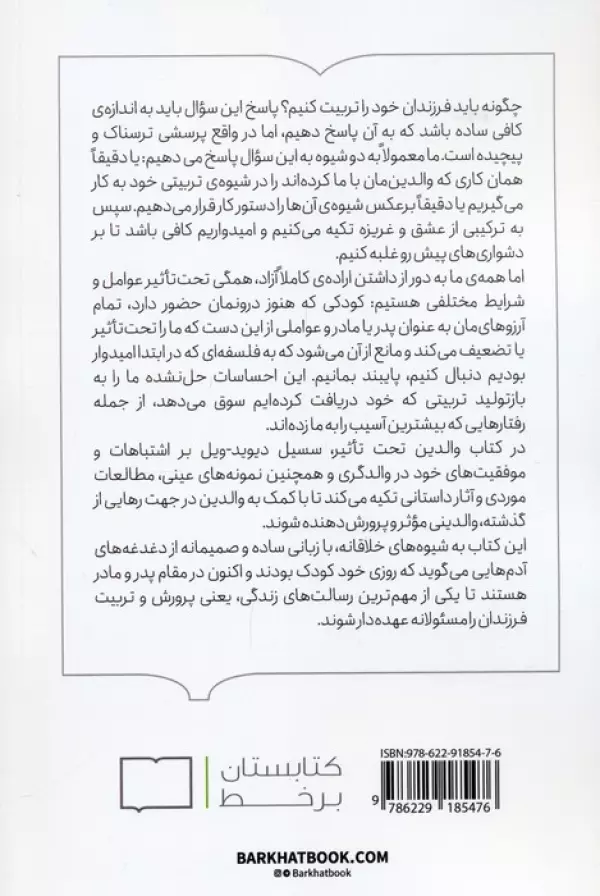 چگونه باید فرزندان خود را تربیت کنیم؟ پاسخ این سؤال باید به اندازه‌ی
کافی ساده باشد که به آن پاسخ دهیم، اما در واقع پرسشی ترسناک و
پیچیده است. ما معمولاً به دو شیوه به این سؤال پاسخ می دهیم: یا دقیقاً
همان کاری که والدین‌مان با ما کرده‌اند را در شیوه‌ی تربیتی خود به کار
می‌گیریم یا دقیقاً برعکس شیوه‌ی آن‌ها را دستور کار قرار می‌دهیم. سپس
به ترکیبی از عشق و غریزه تکیه می‌کنیم و امیدواریم کافی باشد تا بر
دشواری‌های پیش رو غلبه کنیم.
اما همه‌ی ما به دور از داشتن اراده‌ی کاملاً آزاد، همگی تحت‌تأثیر عوامل و
شرایط مختلفی هستیم: کودکی که هنوز درونمان حضور دارد، تمام
آرزوهای‌مان به عنوان پدر یا مادر و عواملی از این دست که ما را تحت‌تأثیر
یا تضعیف می‌کند و مانع از آن می‌شود که به فلسفه‌ای که در ابتدا امیدوار
بودیم دنبال کنیم، پایبند بمانیم. این احساسات حل‌نشده ما را به
بازتولید تربیتی که خود دریافت کرده‌ایم سوق می‌دهد، از جمله
رفتارهایی که بیشترین آسیب را به ما زده‌اند.
در کتاب والدین تحت تأثیر، سسیل دیوید-ویل بر اشتباهات و
موفقیت‌های خود در والدگری و همچنین نمونه‌های عینی، مطالعات
موردی و آثار داستانی تکیه می‌کند تا با کمک به والدین در جهت رهایی از
گذشته، والدینی مؤثر و پرورش‌دهنده شوند.
این کتاب به شیوه‌های خلاقانه، با زبانی ساده و صمیمانه از دغدغه‌های
آدم‌هایی می‌گوید که روزی خود کودک بودند و اکنون در مقام پدر و مادر
هستند تا یکی از مهم‌ترین رسالت‌های زندگی، یعنی پرورش و تربیت
فرزندان را مسئولانه عهده‌دار شوند.
ISBN:978-622-91854-7-6
9 786229 185476
کتابستان
برخط
BARKHATBOOK.COM
Barkhatbook